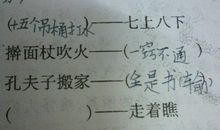 (十五个吊桶打水)——七上八下
擀面杖吹火——(一窍不通)
孔夫子搬家——(全是书(输))
(          )——走着瞧